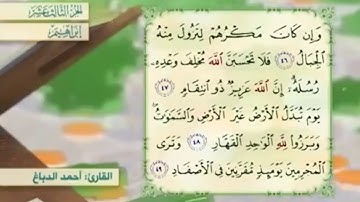 الجزء الثالث عشر
إبراهيم
وَإِن كَانَ مَكْرُهُمْ لِتَزُولَ مِنْهُ
الْجِبَالُ ٤٦ فَلَا تَحْسَبَنَّ اللَّهَ مُخْلِفَ وَعْدِهِ
رُسُلَهُ إِنَّ اللَّهَ عَزِيزٌ ذُو انتِقَامٍ ٤٧
يَوْمَ تُبَدَّلُ الْأَرْضُ غَيْرَ الْأَرْضِ وَالسَّمَاوَاتُ
وَبَرَزُوا لِلَّهِ الْوَاحِدِ الْقَهَّارِ ٤٨ وَتَرَى
الْمُجْرِمِينَ يَوْمَئِذٍ مُّقَرَّنِينَ فِي الْأَصْفَادِ ٤٩
القارئ: أحمد الدباغ